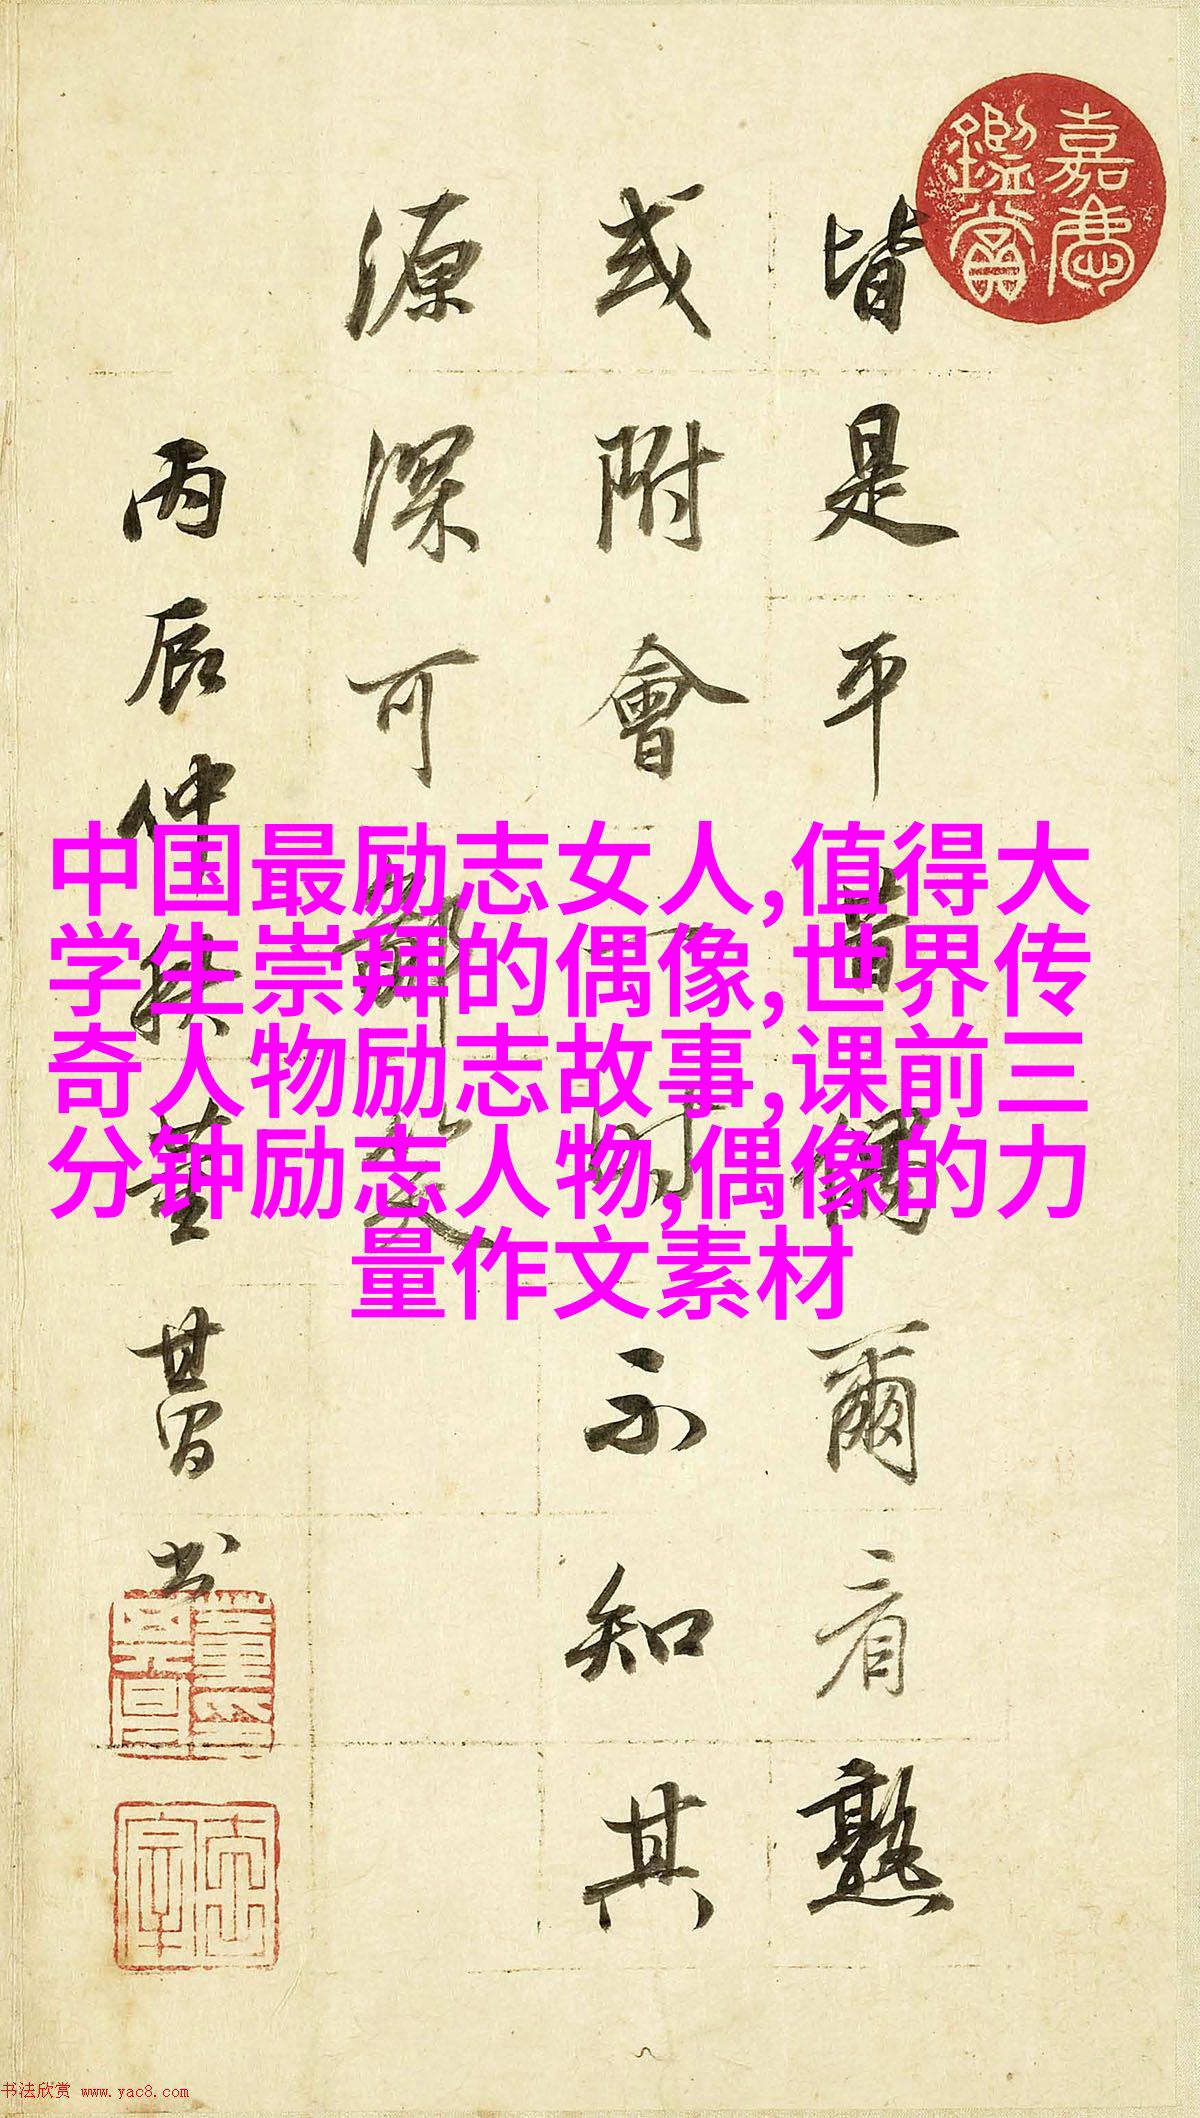 嘉慶
鑑賞
皆是平昔爾看熟
或附會一時不知其
源深可鄙笑
丙辰仲秋董其昌书
中国最励志女人,值得大
学生崇拜的偶像,世界传
奇人物励志故事,课前三
分钟励志人物,偶像的力
量作文素材
书法欣赏 www.yac8.com